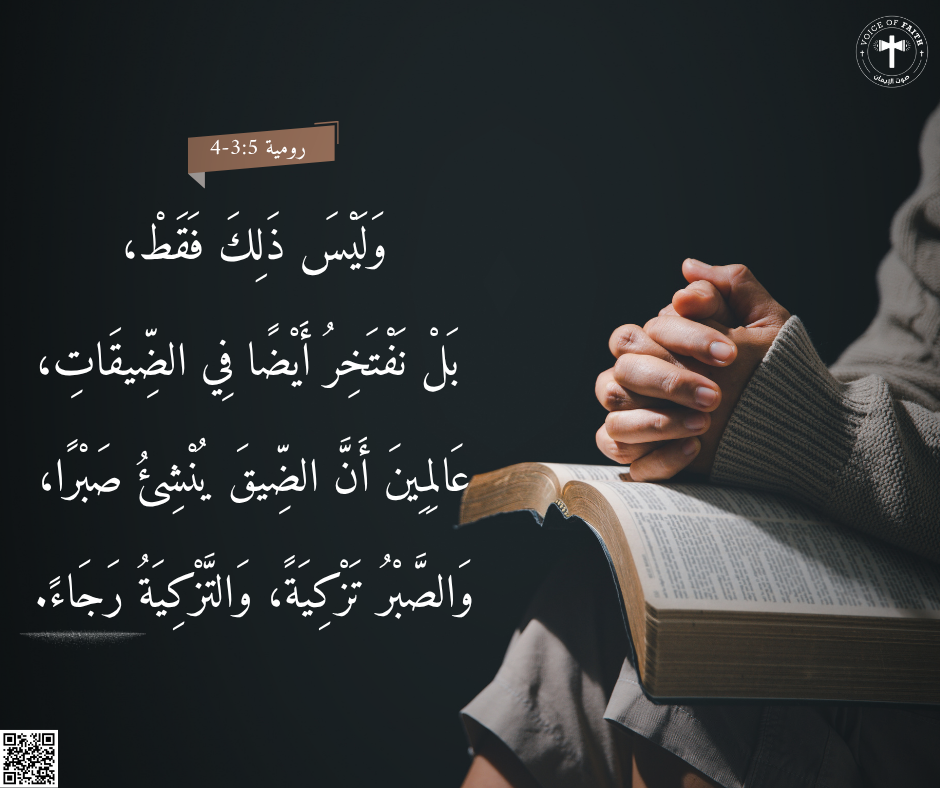 VOICE OF FAITH
صوت الإيمان
رومية 3:5-4
وَلَيْسَ ذَلِكَ فَقَطْ،
بَلْ نَفْتَخِرُ أَيْضًا فِي الضِّيقَاتِ،
عَالِمِينَ أَنَّ الضِّيقَ يُنْشِئُ صَبْرًا،
وَالصَّبْرُ تَزْكِيَةً، وَالتَّزْكِيَةُ رَجَاءً.